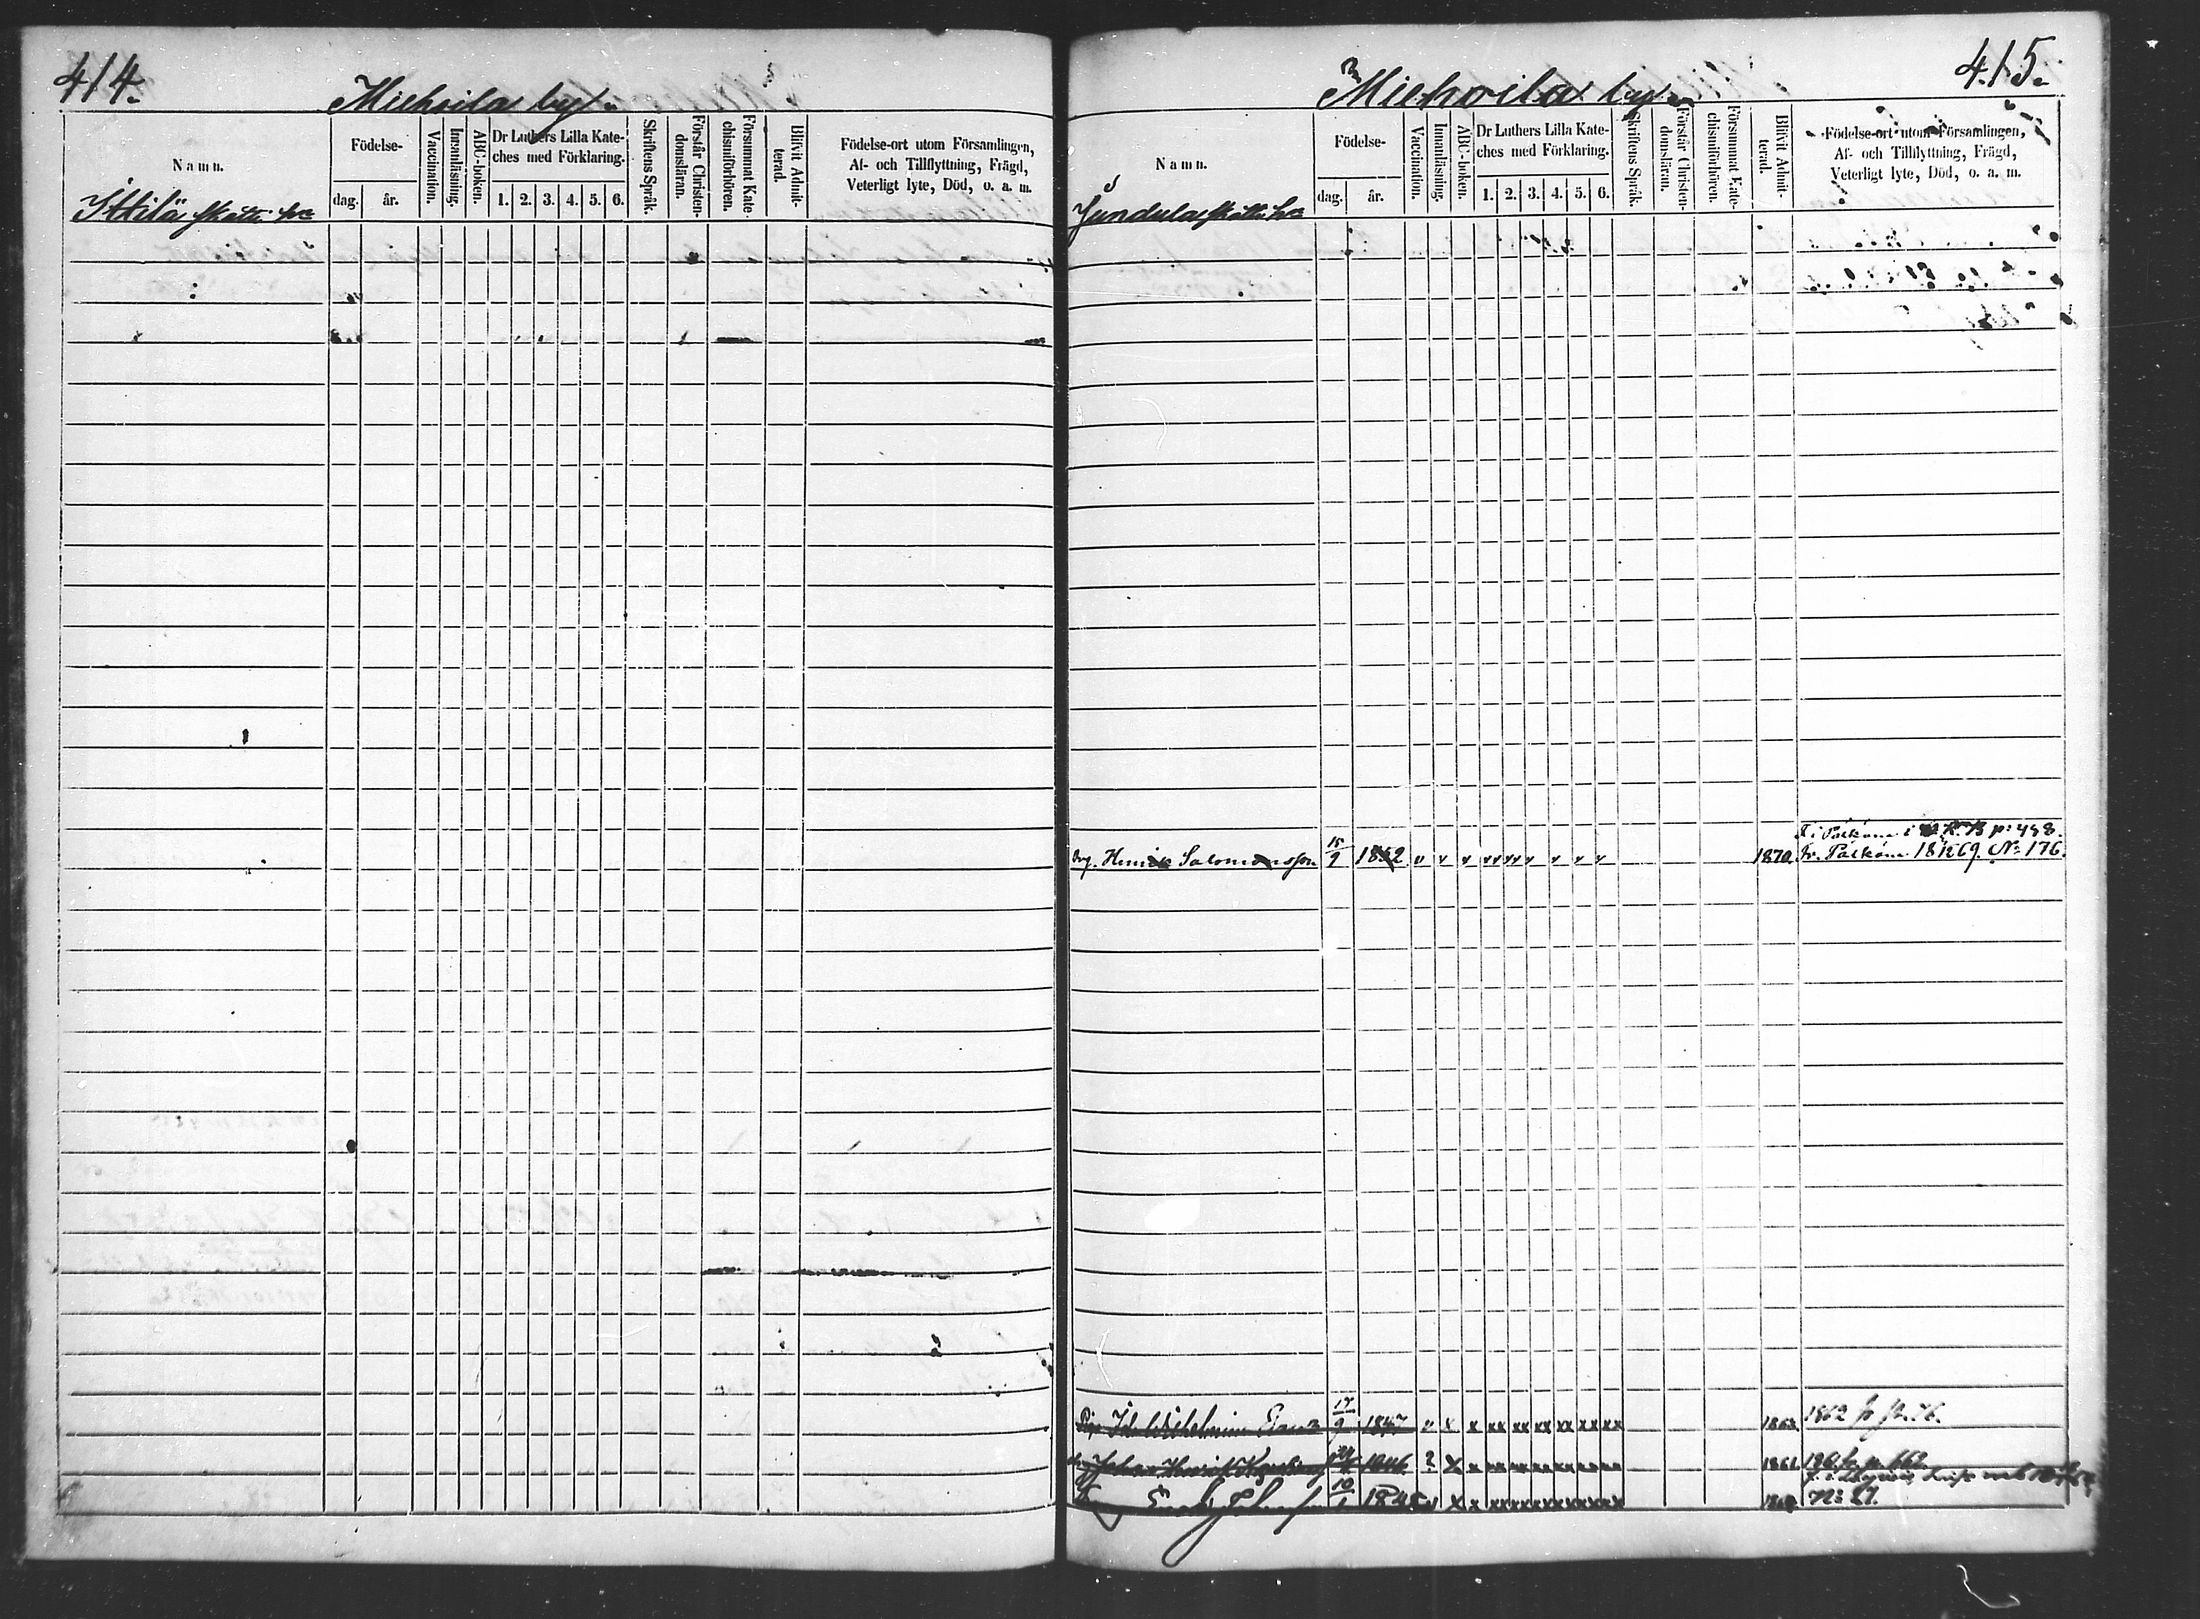 414.
Miehoila by.
Namn.
Födelse-
dag.
år.
Vaccination.
Innanläsning.
ABC-boken.
Dr Luthers Lilla Kate-
ches med Förklaring.
1. 2. 3. 4. 5. 6.
Skriftens Språk.
Förstår Christen-
domsläran.
Försummat Kate-
chismiförhören.
Blifvit Admit-
terad.
Födelse-ort utom Församlingen,
Af- och Tillflyttning, Frägd,
Veterligt lyte, Död, o. a. m.
Ittilä skatte hn
415.
Miehoila by.
Namn.
Födelse-
dag.
år.
Vaccination.
Innanläsning.
ABC-boken.
Dr Luthers Lilla Kate-
ches med Förklaring.
1. 2. 3. 4. 5. 6.
Skriftens Språk.
Förstår Christen-
domsläran.
Försummat Kate-
chismiförhören.
Blifvit Admit-
terad.
Födelse-ort utom Församlingen,
Af- och Tillflyttning, Frägd,
Veterligt lyte, Död, o. a. m.
Jundula skatte hn
F. i Pälkäne p: 458.
Drg. Henrik Salomonsson 15/9 1852 v v v vv vv v v v v 1870. Fr. Pälkäne 1869. No 176.
Pig. Ida Wilhelmina 17/9 1847 v x x xx xx xx xx xx xx 1863. 1862 fr p. 76.
Johan Henrik 1846 ? x x xx xx xx xx xx xx 1861. p. 662
10/1 1845 v x x xx xx xx xx xx xx No 21.